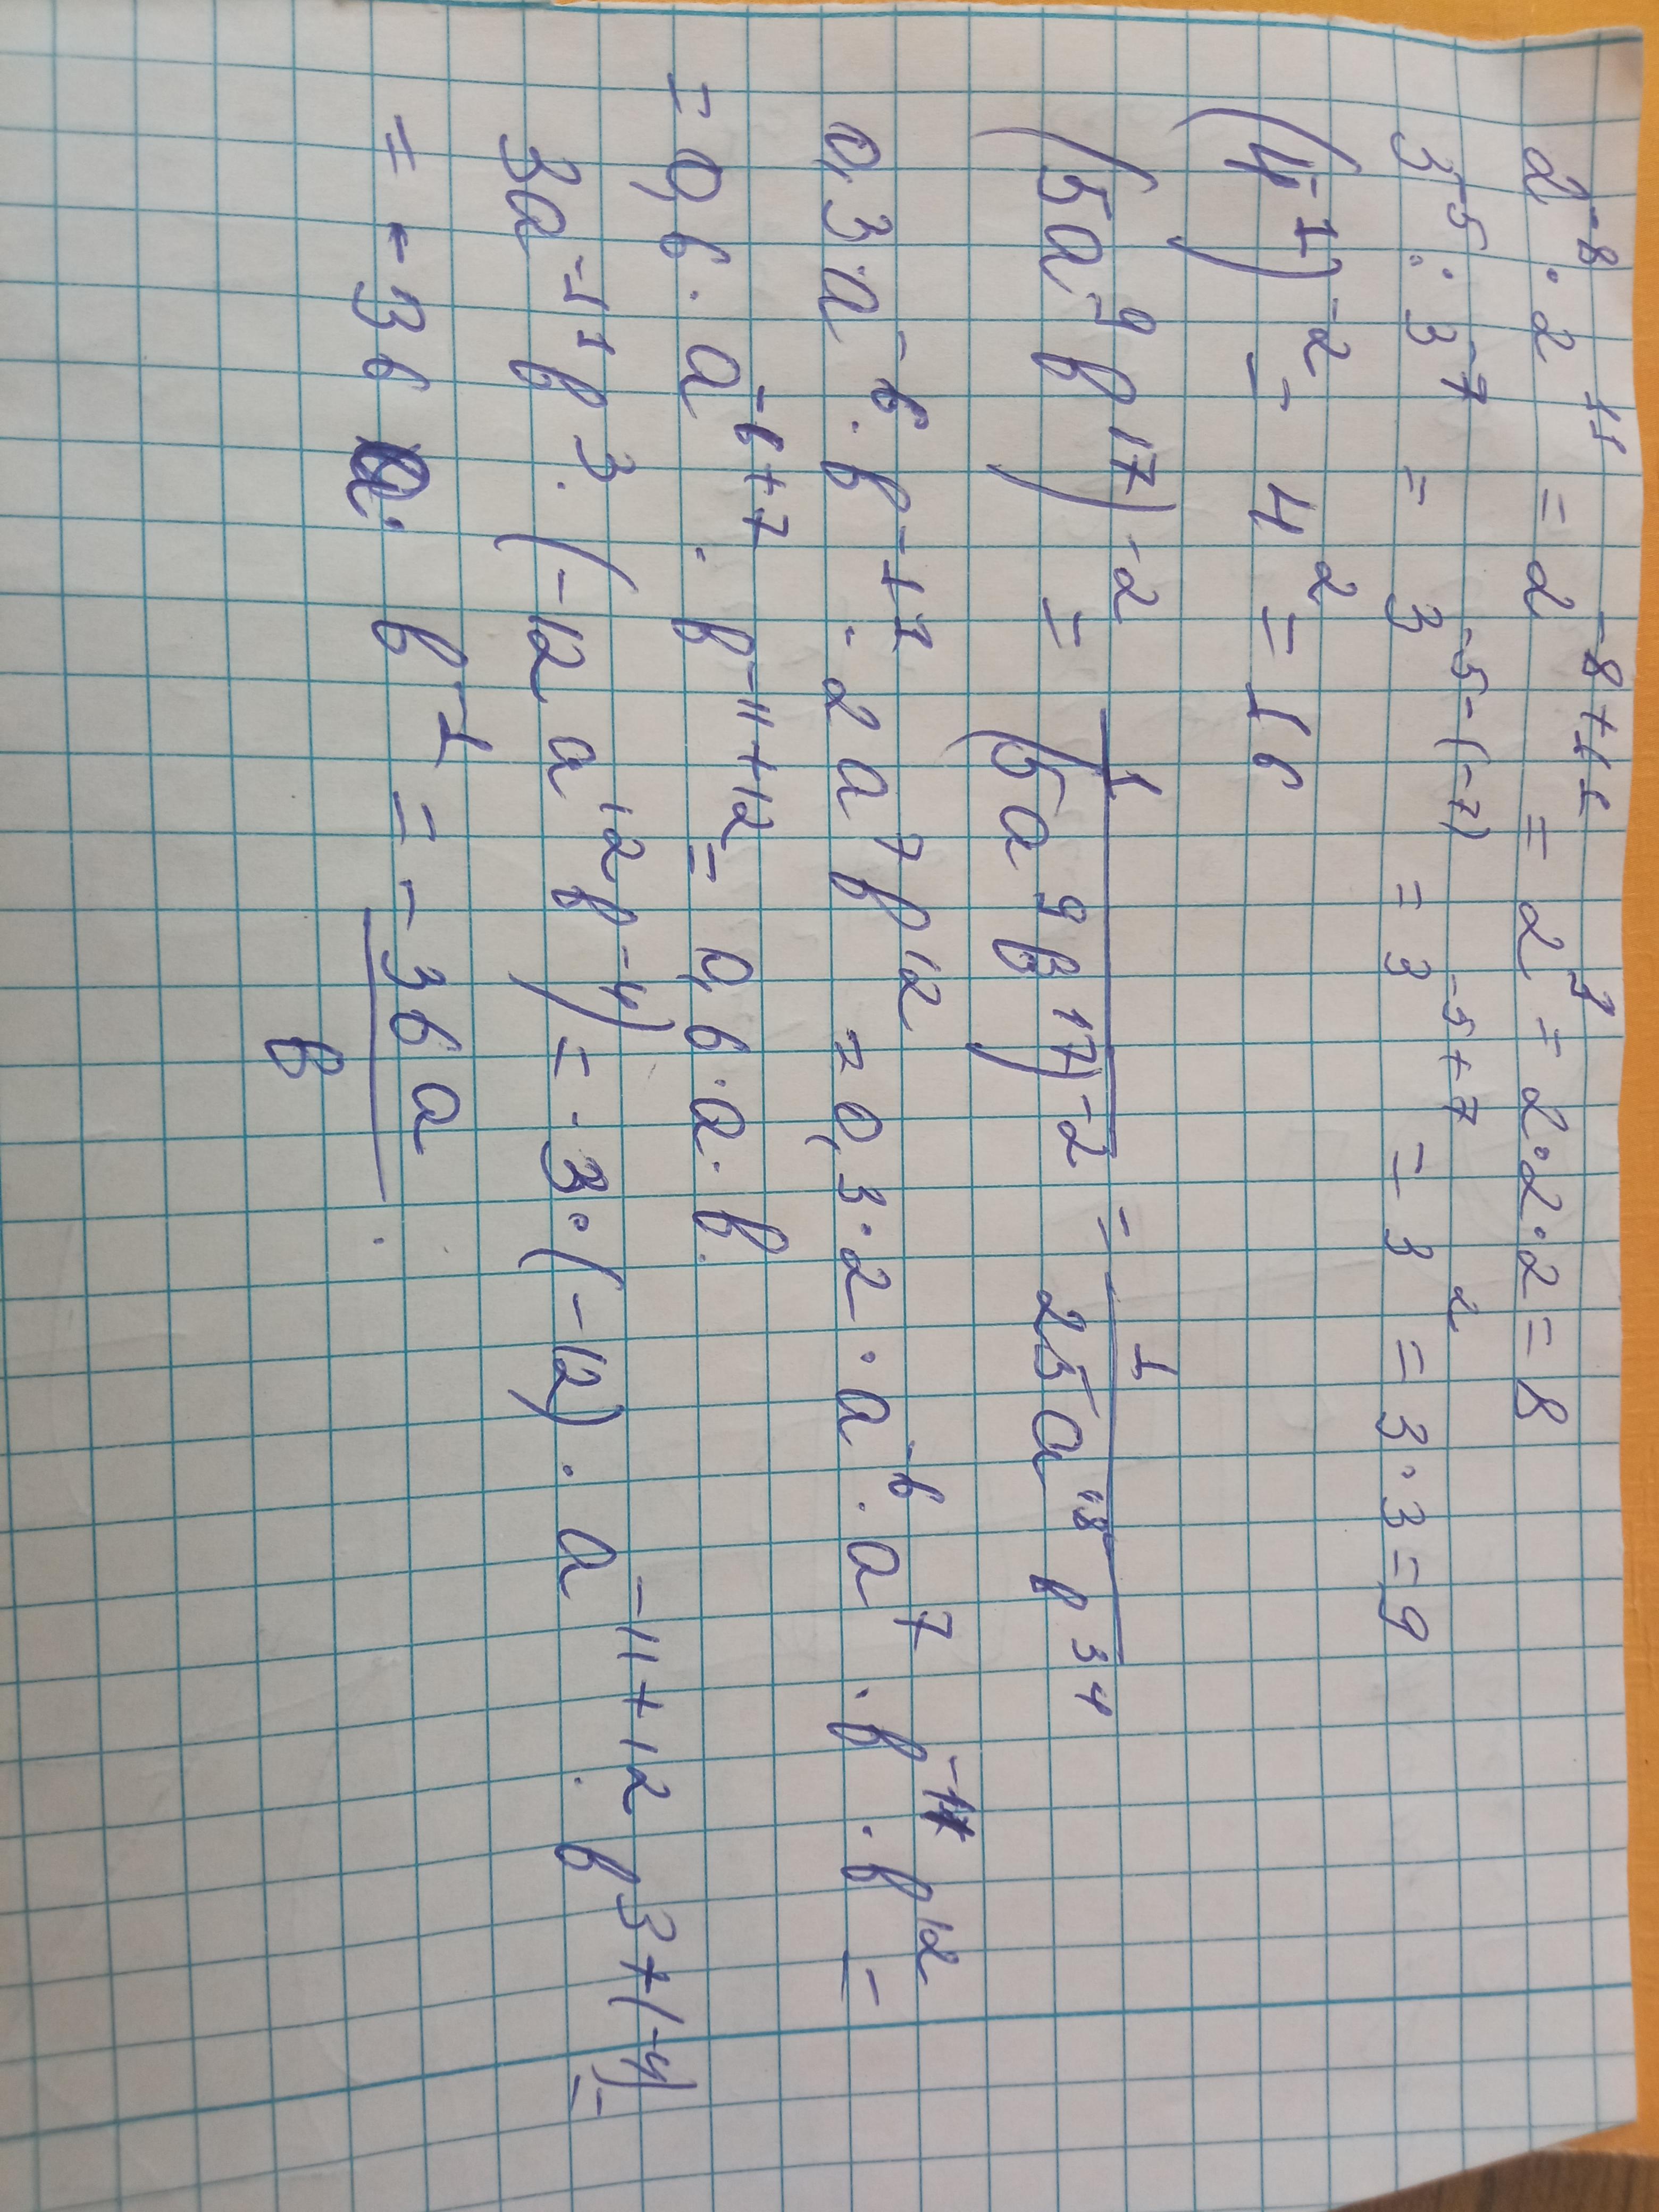 2⁻⁸ · 2¹¹ = 2⁻⁸⁺¹¹ = 2³ = 2·2·2 = 8
3⁻⁵ : 3⁻⁷ = 3⁻⁵⁻⁽⁻⁷⁾ = 3⁻⁵⁺⁷ = 3² = 3·3 = 9
(4⁻¹)⁻² = 4² = 16
(5a⁹b¹⁷)⁻² = 1/(5a⁹b¹⁷)⁻² = 1/25a¹⁸b³⁴
0,3a⁻⁶ · b⁻¹¹ · 2a⁷b¹² = 0,3·2 · a⁻⁶ · a⁷ · b⁻¹¹ · b¹² =
= 0,6 · a⁻⁶⁺⁷ · b⁻¹¹⁺¹² = 0,6·a·b.
3a⁻¹¹b³ · (-12a¹²b⁻⁴) = 3·(-12) · a⁻¹¹⁺¹² · b³⁺⁽⁻⁴⁾ =
= -36a · b⁻¹ = -36a/b.